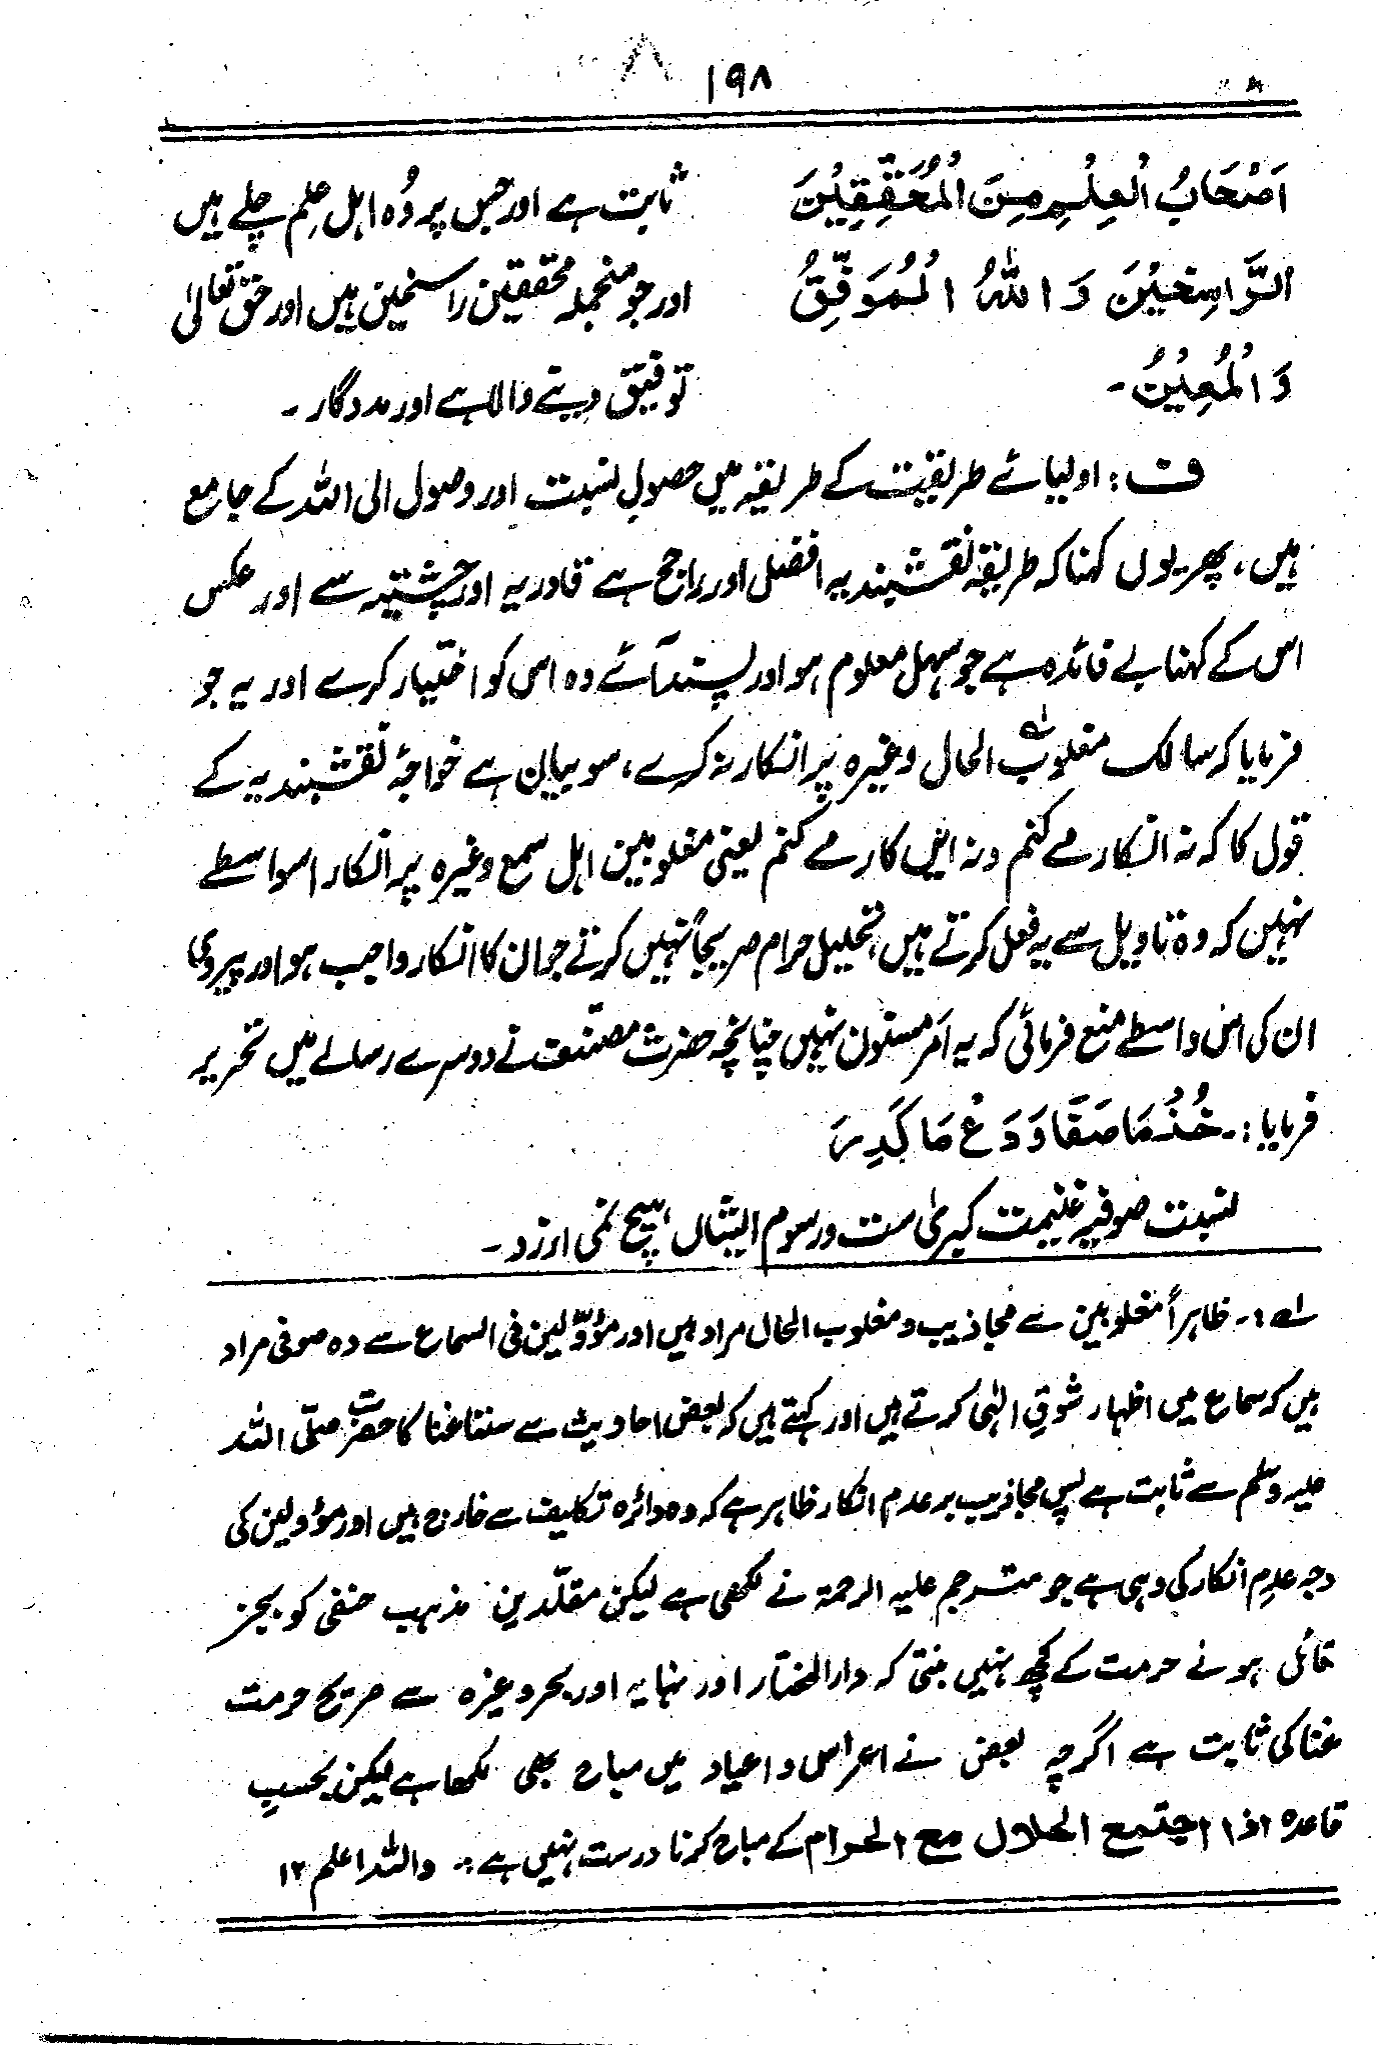 ۱۹۸
اَصْحَابُ الْعِلْمِ مِنَ الْمُحَقِّقِيْنَ
الرَّاسِخِيْنَ وَاللّٰهُ الْمُوَفِّقُ
وَالْمُعِيْنُ۔
ثابت ہے اور جس پر وُہ اہل عِلم چلے ہیں
اور جو منجملہ محققین راسخین ہیں اور حق تعالیٰ
توفیق دینے والا ہے اور مددگار۔
ف: اولیائے طریقت کے طریقہ میں حصولِ نسبت اور وصول الی اللہ کے جامع
ہیں، پھر یوں کہنا کہ طریقہ نقشبندیہ افضل اور راجح ہے قادریہ اور چشتیہ سے اور عکس
اس کے کہنا بے فائدہ ہے جو سہل معلوم ہو اور پسند آئے وہ اس کو اختیار کرے اور یہ جو
فرمایا کہ سالک مغلوبُ الحال وغیرہ پر انکار نہ کرے، سو بیان ہے خواجۂ نقشبندیہ کے
قول کا کہ نہ انکار مے کنم و نہ ایں کار مے کنم یعنی مغلوبین اہل سمع وغیرہ پر انکار اسواسطے
نہیں کہ وہ تاویل سے یہ فعل کرتے ہیں، تحلیل حرام صریحاً نہیں کرتے جو ان کا انکار واجب ہو اور پیروی
ان کی اس واسطے منع فرمائی کہ یہ اَمر مسنون نہیں چنانچہ حضرت مصنّف نے دوسرے رسالے میں تحریر
فرمایا:۔ خُذْ مَا صَفَا وَدَعْ مَا كَدِرَ
نسبت صوفیہ غنیمت کبریٰ ست و رسوم ایشاں ہیچ نمی ارزد۔
لے :۔ ظاہراً مغلوبین سے مجاذیب و مغلوب الحال مراد ہیں اور مؤوّلین فی السماع سے وہ صوفی مراد
ہیں کہ سماع میں اظہار شوقِ الٰہی کرتے ہیں اور کہتے ہیں کہ بعض احادیث سے سننا غنا کا حضرت صلّی اللہ
علیہ وسلم سے ثابت ہے پس مجاذیب بر عدم انکار ظاہر ہے کہ وہ دائرہ تکلیف سے خارج ہیں اور مؤولین کی
وجہ عدِم انکار کی وہی ہے جو مترجم علیہ الرحمۃ نے لکھی ہے لیکن مقلّدین مذہب حنفی کو بجز
قائل ہونے حرمت کے کچھ نہیں بنتی کہ دارالمختار اور نہایہ اور بحر وغیرہ سے صریح حرمت
غنا کی ثابت ہے اگرچہ بعض نے اعراس و اعیاد میں مباح بھی لکھا ہے لیکن بحسبِ
قاعدہ اذا اجتمع الحلال مع الحرام کے مباح کرنا درست نہیں ہے :۔ واللہ اعلم ۱۲